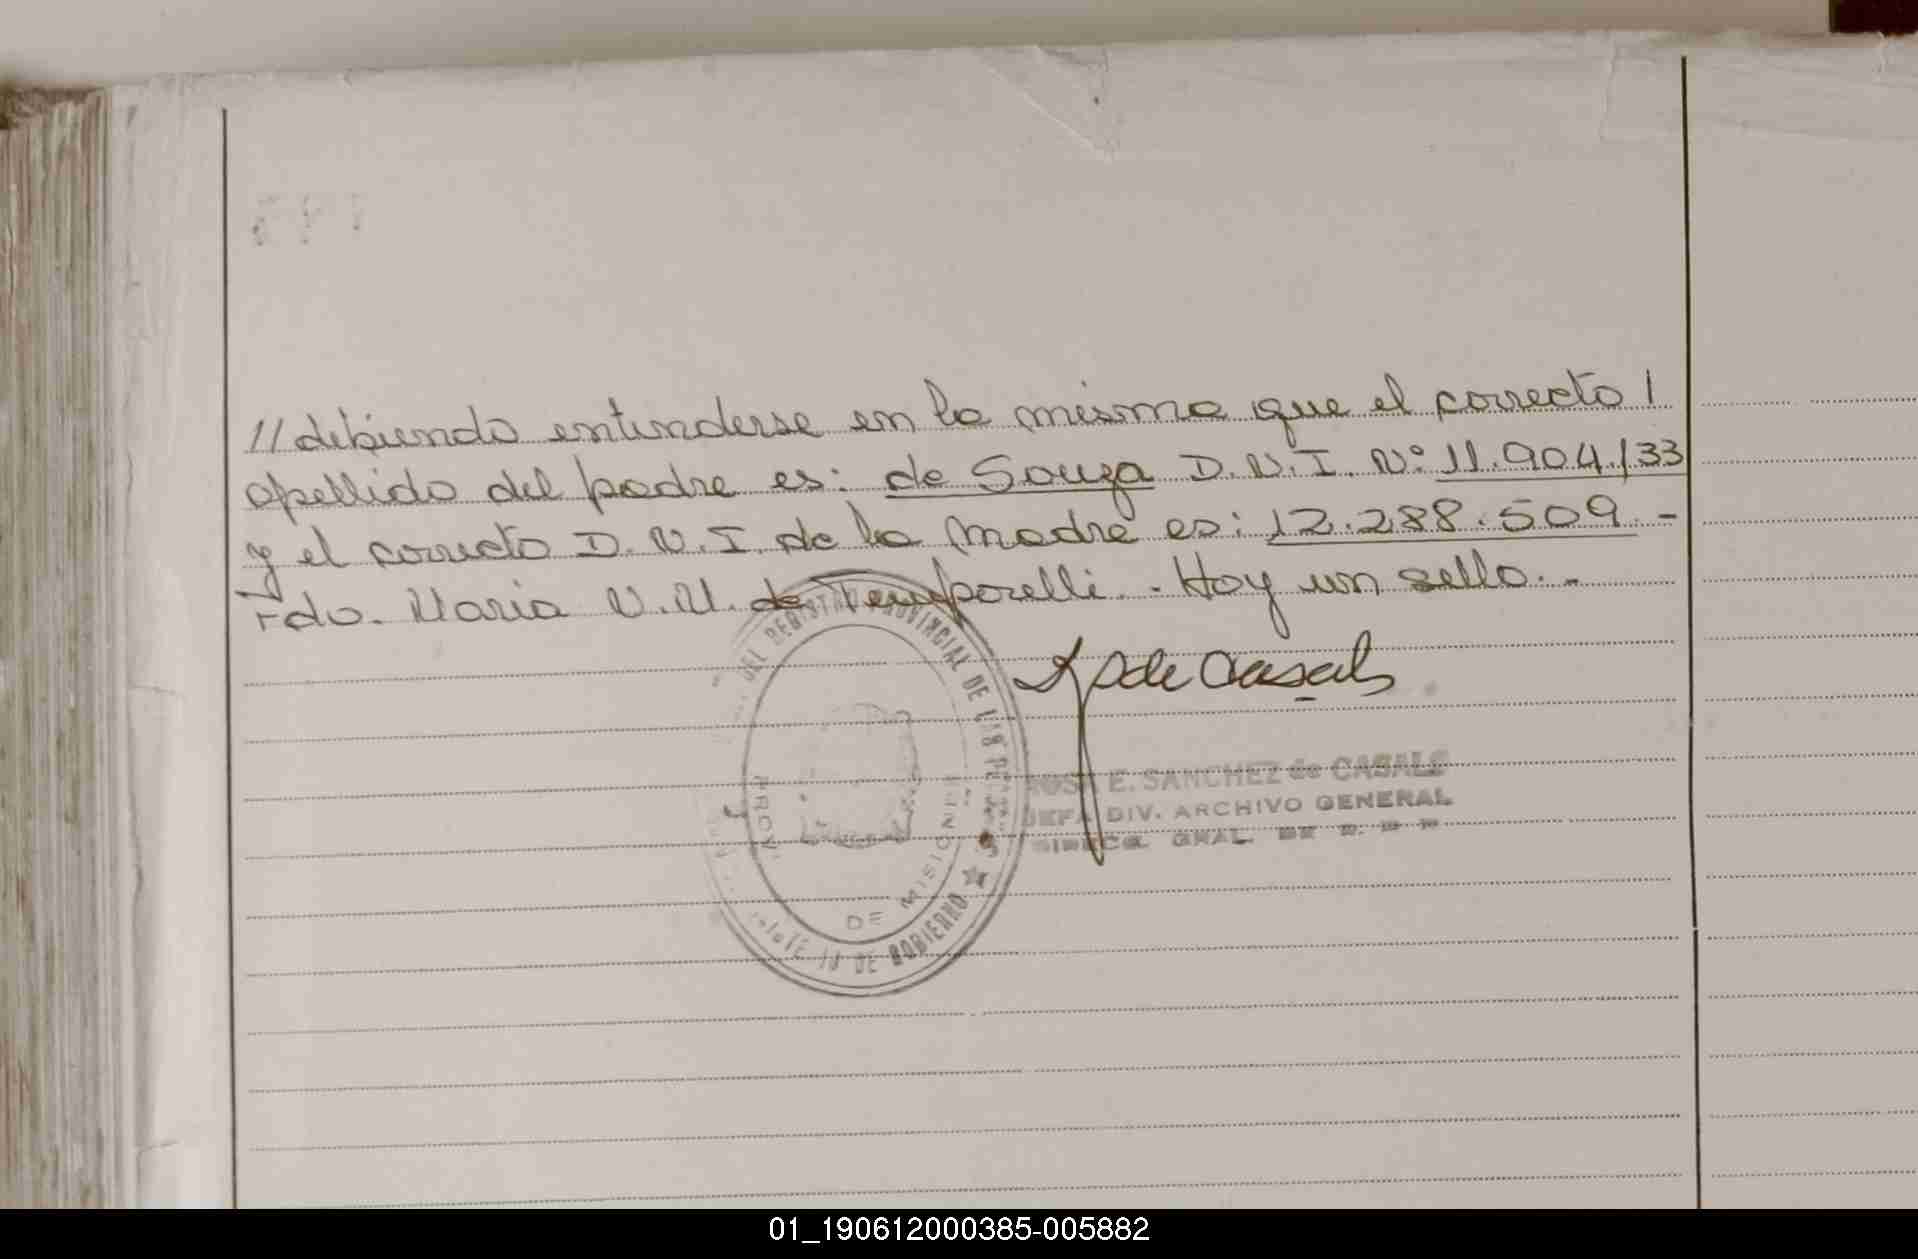 //debiendo entenderse en la misma que el correcto /
apellido del padre es: de Souza D.N.I. Nº 11.904.133
y el correcto D.N.I. de la madre es: 12.288.509.-
Fdo. Maria N.M. de Temporelli.- Hay un sello.-
DEL REGISTRO PROVINCIAL DE LAS PERSONAS
DE GOBIERNO
PROV. DE MISIONES
R S de Casals
ROSA E. SANCHEZ de CASALS
JEFA DIV. ARCHIVO GENERAL
DIRECC. GRAL. DE R. P. P.
01_190612000385-005882